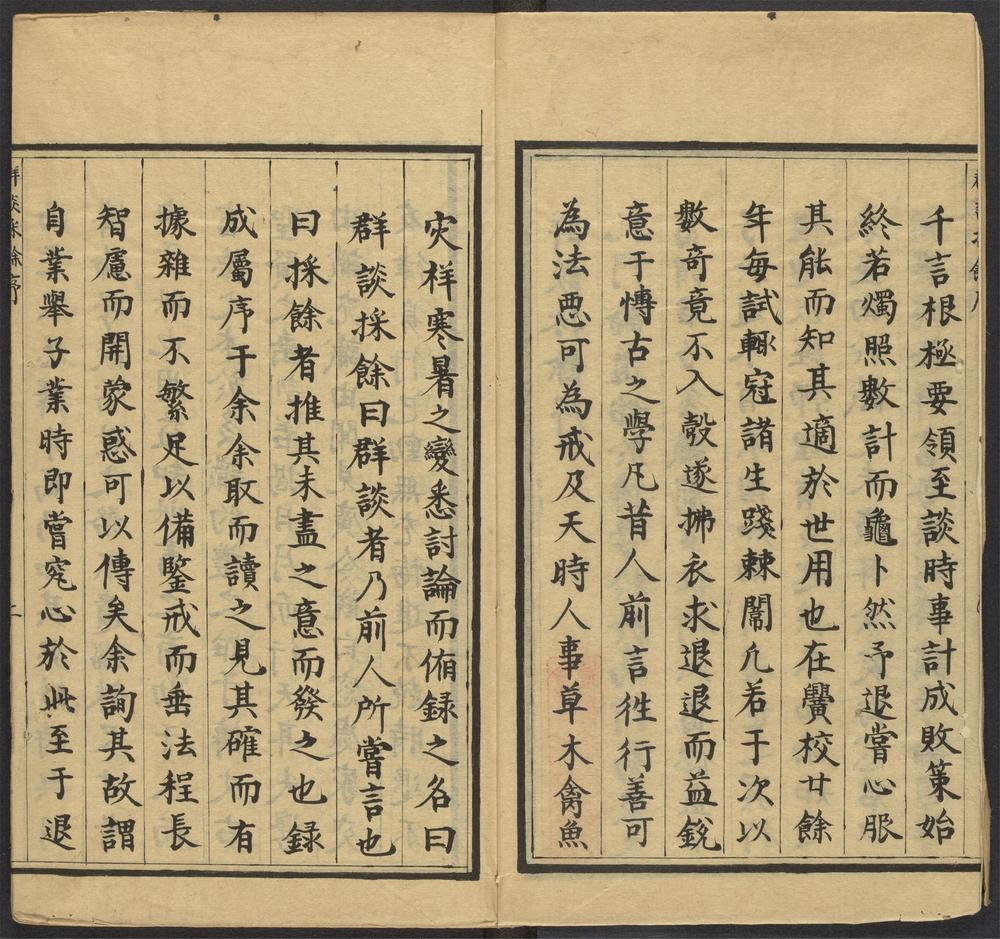 千言根極要領至談時事計成敗策始
終若燭照數計而龜卜然予退嘗心服
其能而知其適於世用也在黌校廿餘
年每試輒冠諸生踐棘闈凢若干次以
數奇竟不入彀遂拂衣求退退而益銳
意于愽古之學凡昔人前言徃行善可
為法惡可為戒及天時人事草木禽魚
灾祥寒暑之變悉討論而俻録之名曰
群談採餘曰群談者乃前人所嘗言也
曰採餘者推其未盡之意而發之也録
成屬序于余余取而讀之見其確而有
據雜而不繁足以備鑒戒而垂法程長
智慮而開蒙惑可以傳矣余詢其故謂
自業舉子業時即嘗究心於此至于退
群談採餘序
二